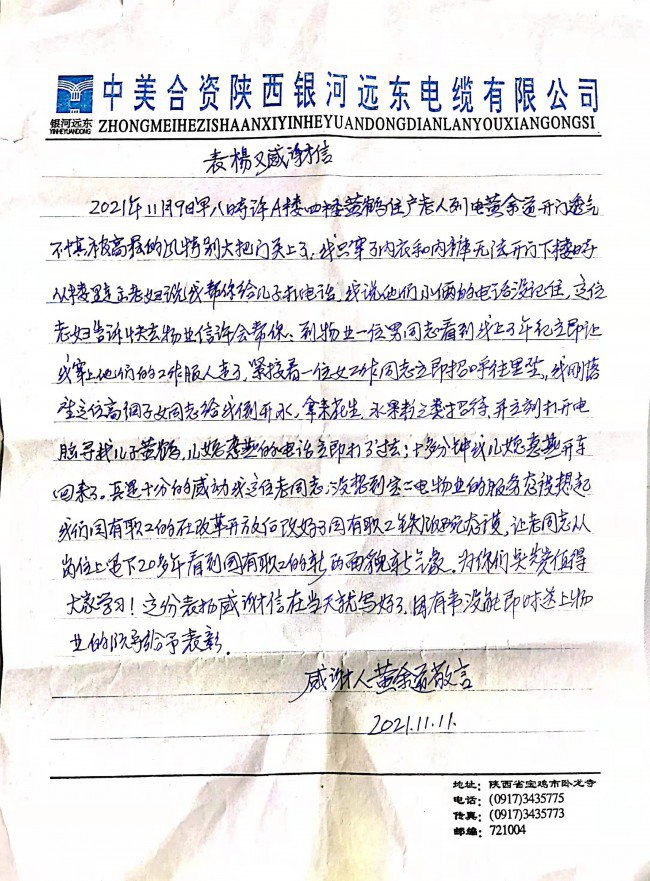 中美合资陕西银河远东电缆有限公司
银河远东
YINHEYUANDONG
ZHONGMEIHEZISHAANXIYINHEYUANDONGDIANLANYOUXIANGONGSI
表楊又感谢信
2021年11月9日早八時许A楼四楼黄鹤住户老人到电黄余道开门透气
不慎被高层的风特别大把门关上了,我只穿了内衣和内裤无法开门下楼时
从楼里走老妇说我帮你给儿子打电话,我说他们小俩的电话没记住,这位
老妇告诉快去物业信许会帮你、到物业一位男同志看到我上了年纪立即让
我穿上他们的工作服人走了,紧接着一位女工作同志立即招呼往里坐,我刚落
坐这位高细子女同志给我倒开水,拿来花生,水果教之类招待,并立刻打开电
脑寻找儿子黄鹤,儿媳惠燕的电话立即打了过去;十多分钟我儿媳惠燕开车
回来了。真是十分的感动我这位老同志,没想到宝二电物业的服务态设想起
我们固有职工的在改革开放何改好了固有职工铁饭碗态摸,让老同志从
岗位上退下20多年看到固有职工的新的面貌新气象。为你们点赞值得
大家学习!这份表扬感谢信在当天就写好了,因有事没能即时送上物
业的领导给予表彰。
感谢人黄余道敬言
2021.11.11.
地址:陕西省宝鸡市卧龙寺
电话:(0917)3435775
传真:(0917)3435773
邮编:721004